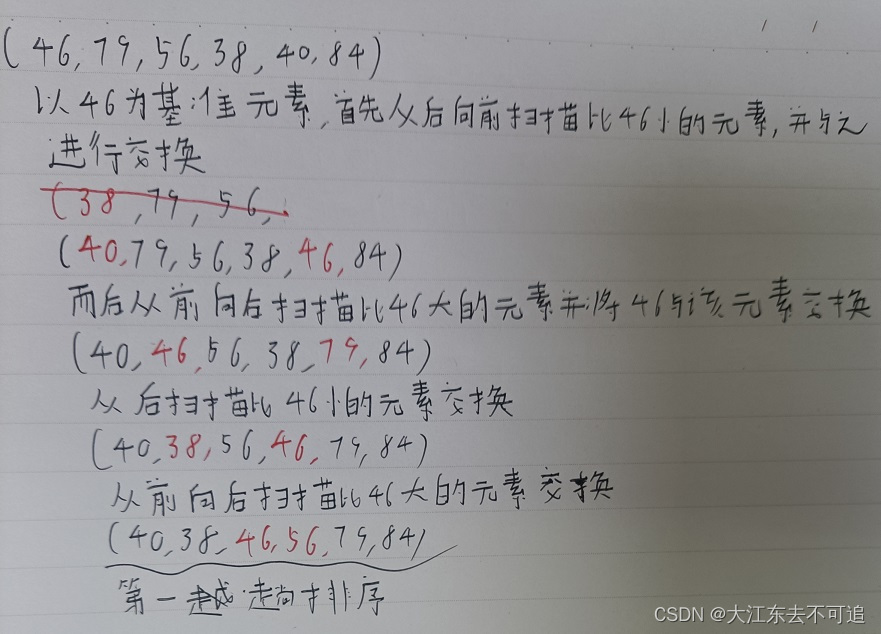 (46,79,56,38,40,84)
以46为基准元素,首先从后向前扫描比46小的元素,并与之
进行交换
(38,79,56,
(40,79,56,38,46,84)
而后从前向后扫描比46大的元素并将46与该元素交换
(40,46,56,38,79,84)
从后扫描比46小的元素交换
(40,38,56,46,79,84)
从前向后扫描比46大的元素交换
(40,38,46,56,79,84)
第一趟排序
CSDN @大江东去不可追